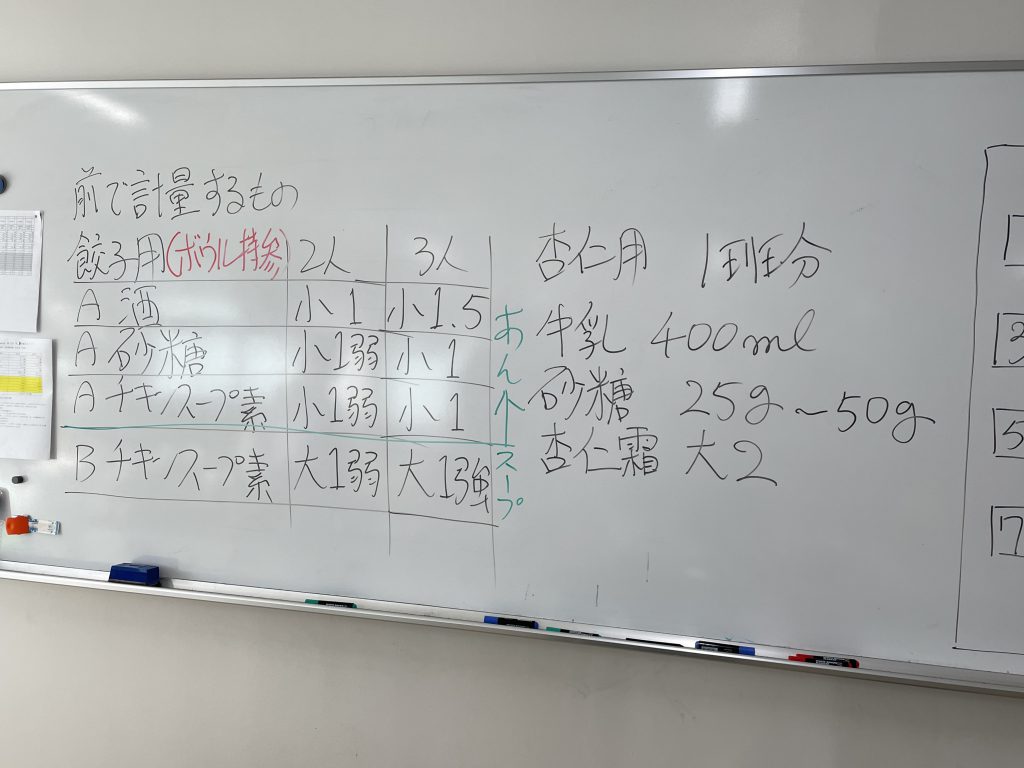 前で計量するもの
餃子用(ボウル持参) 2人 3人
A 酒 小1 小1.5
A 砂糖 小1弱 小1
A チキンスープ素 小1弱 小1
B チキンスープ素 大1弱 大1強
あん
スープ
杏仁用 1班分
牛乳 400ml
砂糖 25g~50g
杏仁霜 大2
3
5
7